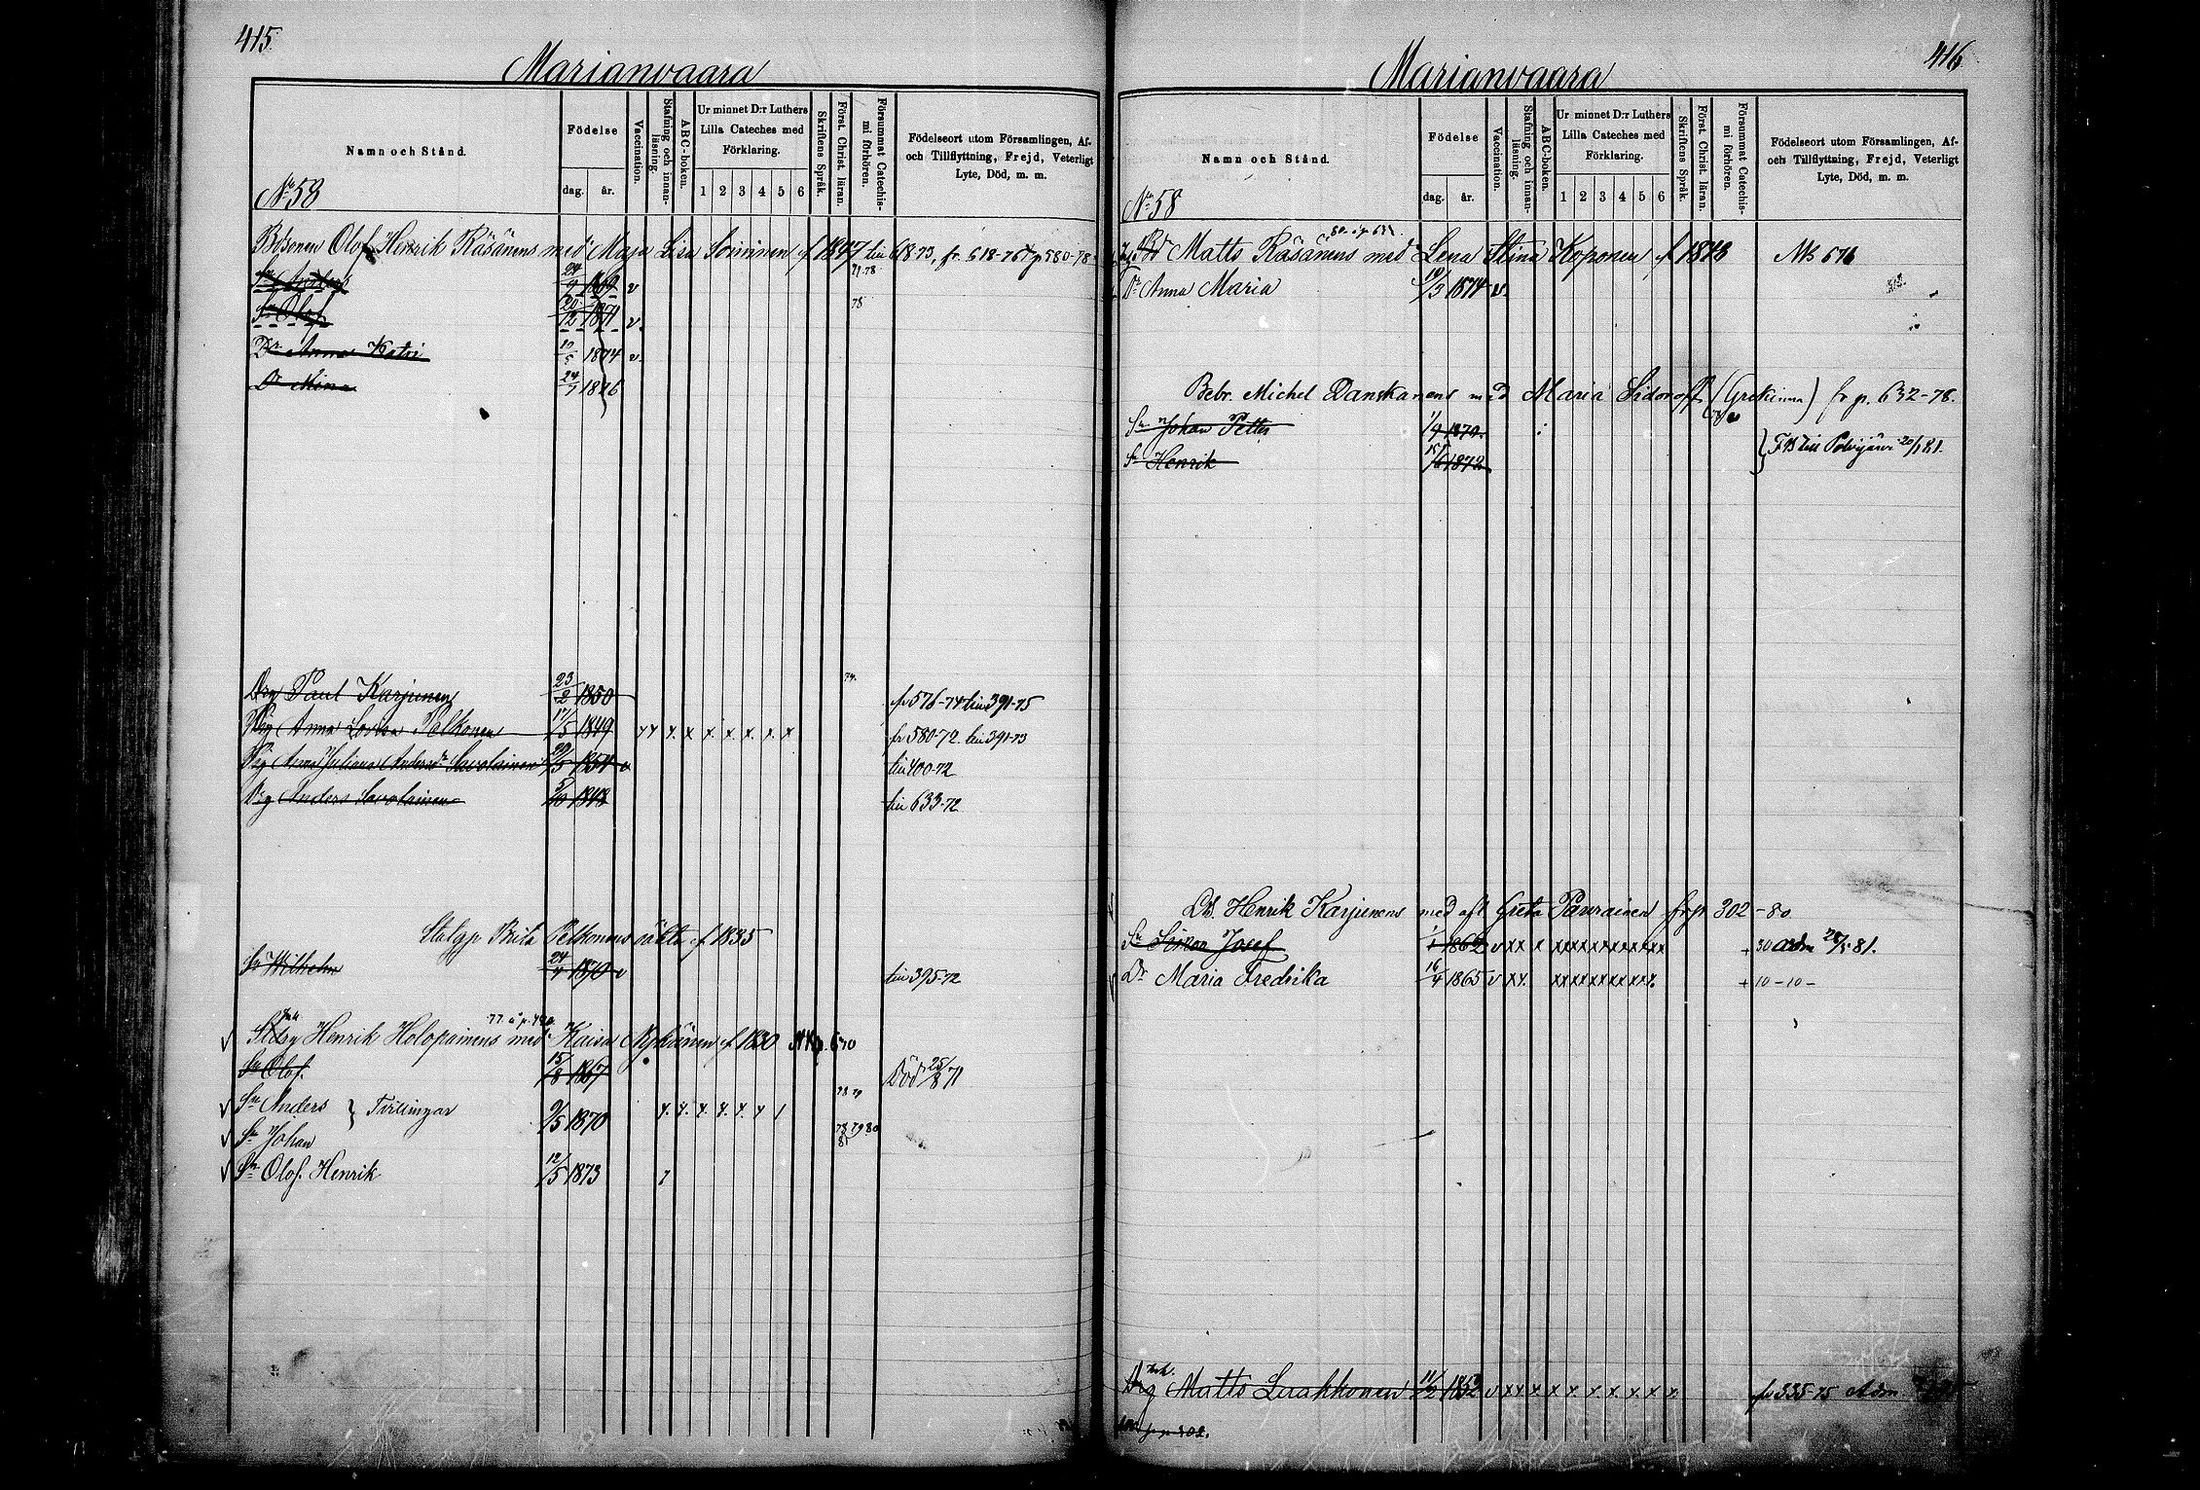 415
Marianvaara
Namn och Stånd.
Födelse
dag.
år.
Vaccination.
Stafning och innanläsning.
ABC-boken.
Ur minnet D:r Luthers
Lilla Cateches med
Förklaring.
1 2 3 4 5 6
Skriftens Språk.
Först. Christ. läran.
Försummat Catechismi förhören.
Födelseort utom Församlingen, Af-
och Tillflyttning, Frejd, Veterligt
Lyte, Död, m. m.
No 58
Olof Henrik Räsänens med Maja Lisa f 1847 618-73, fr. 618-76 p 580-78
Sn Anders 24/9 1869 v 77.78
Sn Olof 12 1871 v. 78
Dr Anna Katri 10/5 1874 v.
Dr Mina 24/7 1876
Drg Paul Karjunen 23/2 1850 74. fr 576-74 till 391-75
Pig Anna Lovisa Palkonen 17/5 1849 fr 580-72. till 391-73
Pig Anna Juliana Andersdr Savolainen 29/5 1854 v till 400-72
Drg Anders Savolainen 5/10 1848 till 633-72
Brita Pelkonens f 1835
Sn Wilhelm 24/4 1870 v till 395-72
Henrik Holopainens med Kaisa f 1830 670
Sn Olof. 15/8 1867 Död 25/8 71
Sn Anders } Tvillingar 9/5 1870 78 79
Sn Johan 78 79 80 81
Sn Olof. Henrik 12/5 1873
416
Marianvaara
Namn och Stånd.
Födelse
dag.
år.
Vaccination.
Stafning och innanläsning.
ABC-boken.
Ur minnet D:r Luthers
Lilla Cateches med
Förklaring.
1 2 3 4 5 6
Skriftens Språk.
Först. Christ. läran.
Försummat Catechismi förhören.
Födelseort utom Församlingen, Af-
och Tillflyttning, Frejd, Veterligt
Lyte, Död, m. m.
No 58
Matts Räsänens med Lena Stina Koponen f 1848 Nk 671
Dr Anna Maria 10/3 1874 v.
Bebr. Michel Danskanens med Maria Sidoroff (Grekinna) fr p. 632-78.
Sn Johan Petter 1/9 1870.
Sn Henrik 1872 } FB till Polvijärvi 20/1 81.
Henrik Karjunens med afl Greta Paurainen fr p 302-80
Sn Simon Josef 1862 v xx x xxxxxxxxxxx + 30 adm 81.
Dr Maria Fredrika 16/4 1865 v xx. xxxxxxxxxx. + 10-10-
Drg Matts Luukkonen 1852 v xx x x x x x x x x fr 335-75 Adm.